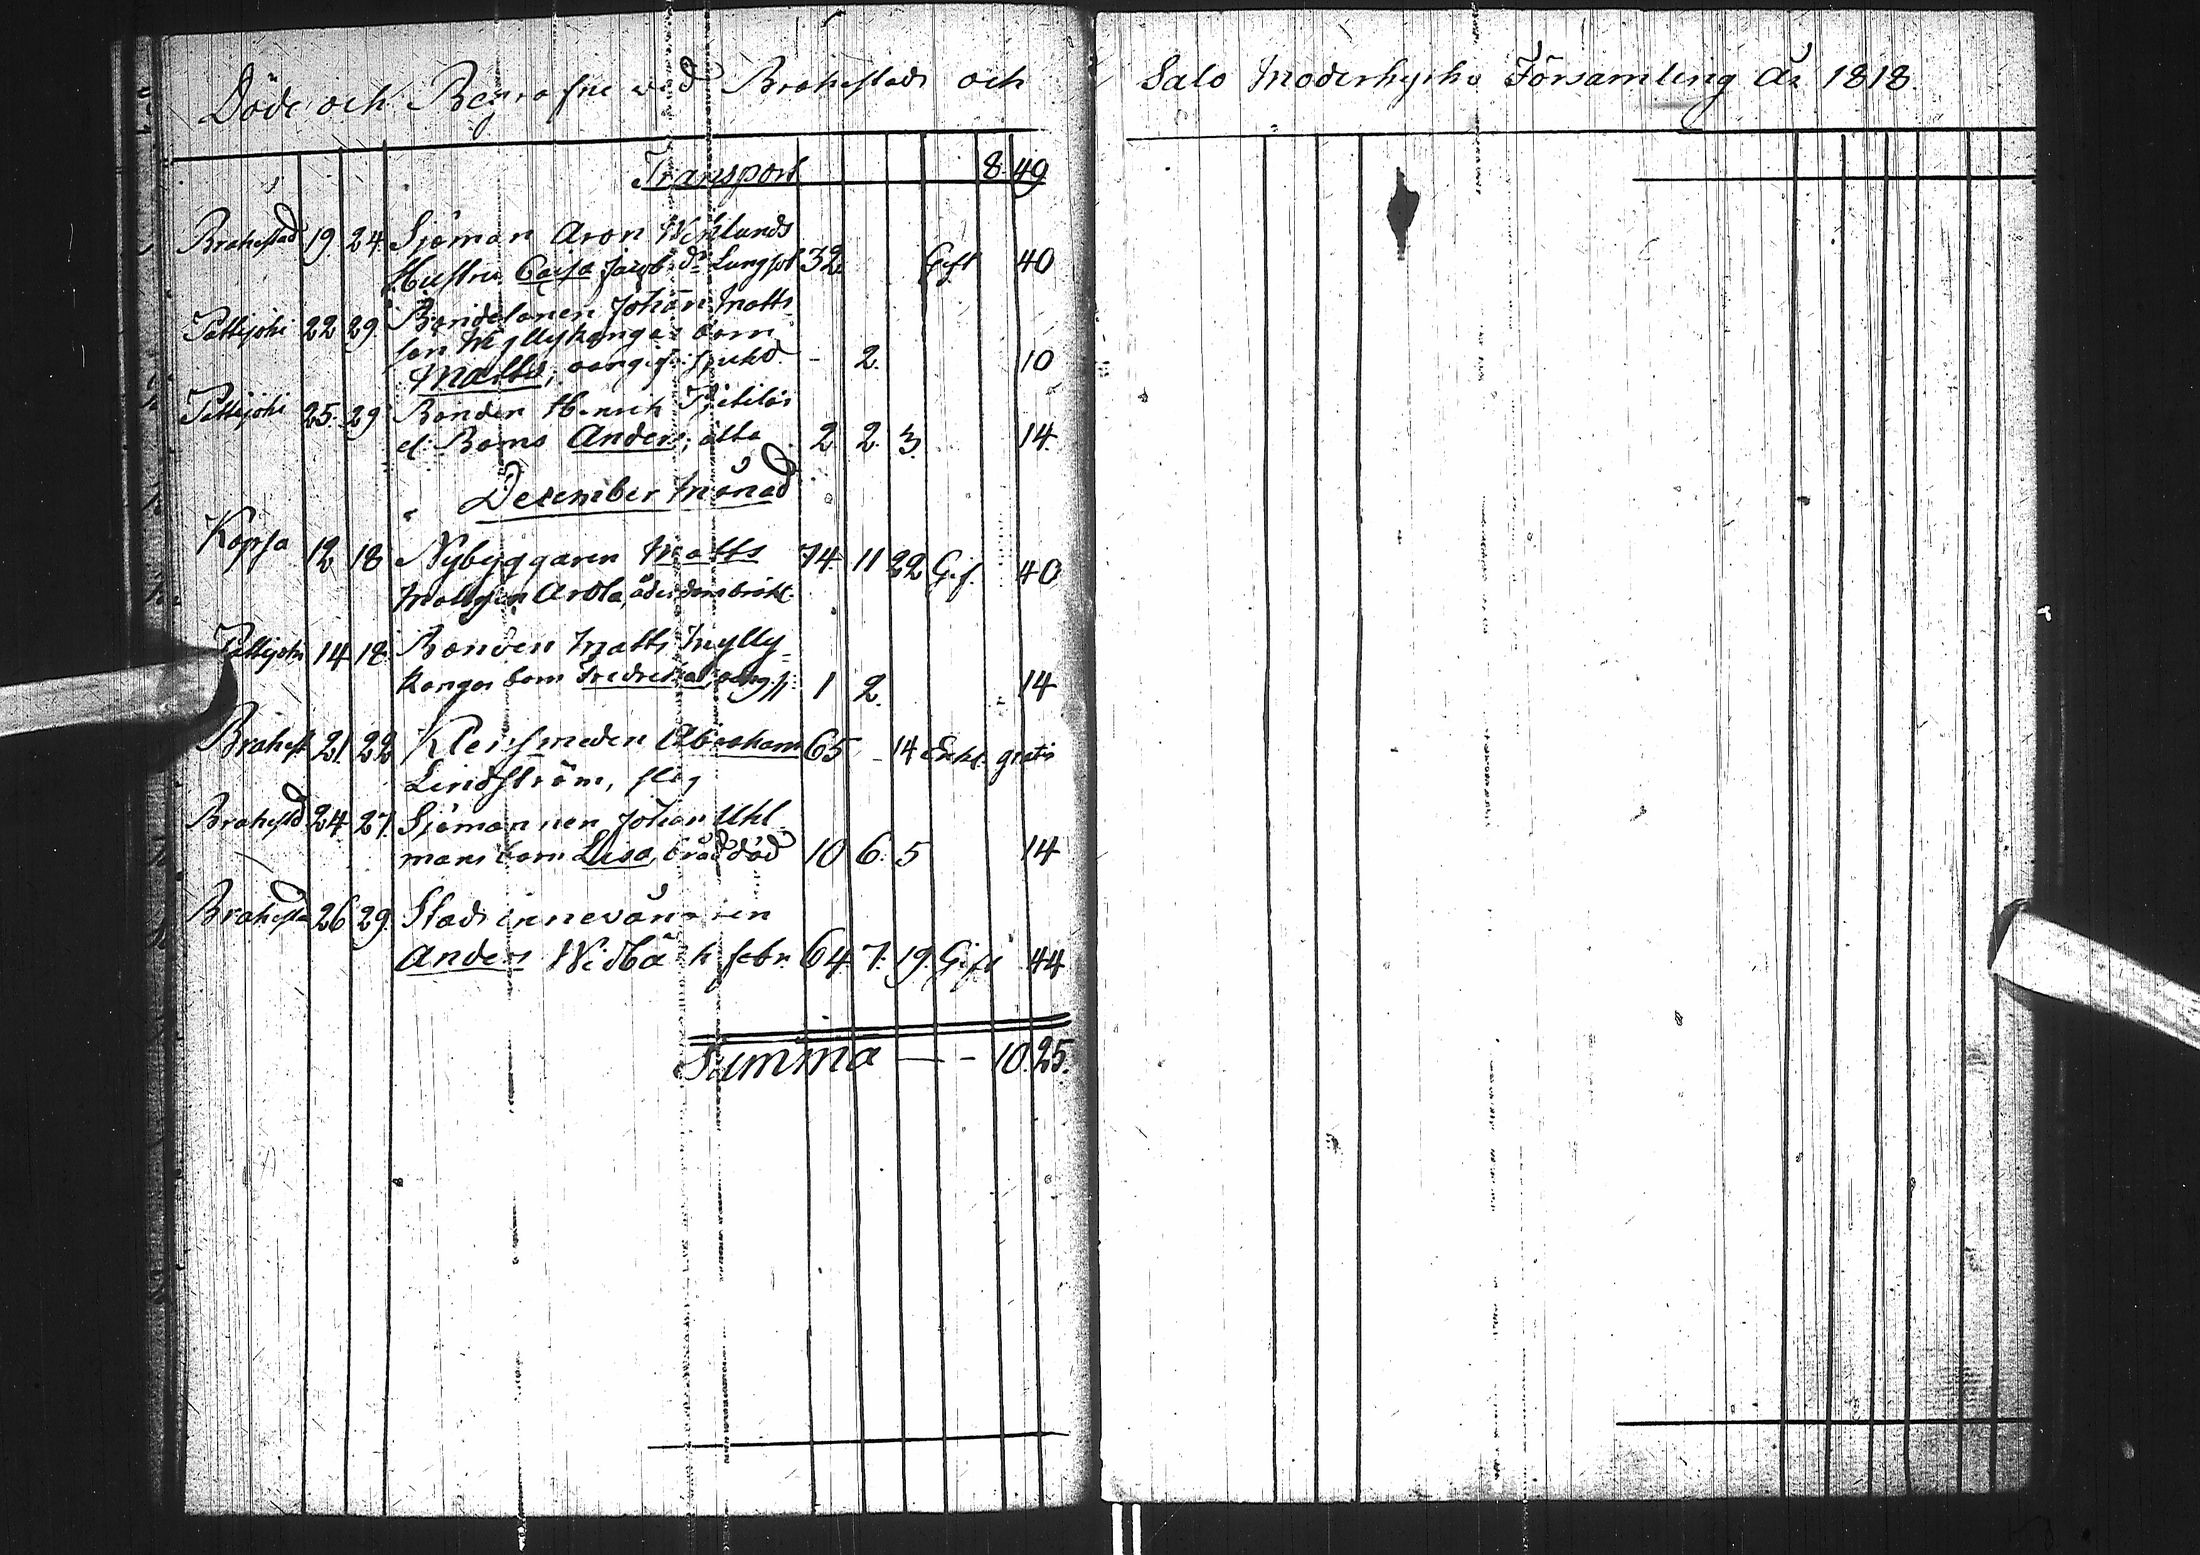 Döde och Begrafne vid Brahestads och Salo Moderkyrko Församling År 1818.
Transport 8 49
Brahestad 19. 24. Sjöman Aron Wiklunds
Hustru Caisa Jacobs dr Lungsot 32. Gift 40
Pattijoki 22 29. Bondesonen Johan Matts
son Myllykangas barn
Matts, oangif. sjukd. - 2. 10
Pattijoki 25. 29 Bonden Henrik
Barns Anders, ålta 2 2. 3. 14.
December Månad
Kopsa 12 18 Nybyggaren Matts 74. 11 22 Gif. 40
Mattson Arola, ålderdomsbräckl.
Pattijoki 14 18. Bonden Matts Mylly-
kangas barn Fredrika, oang. sj. 1 2. 14
Brahest. 21. 22 Klensmeden Abraham 65 - 14 Enkl. gratis
Lindström, slag
Brahestd 24 27. Sjömannen Johan Uhl
mans barn Lisa, bråd död 10 6. 5 14
Brahestad 26 29. Stads innevånaren
Anders Widbäck febr. 64 7. 19. Gift 44
Summa — - 10. 25.